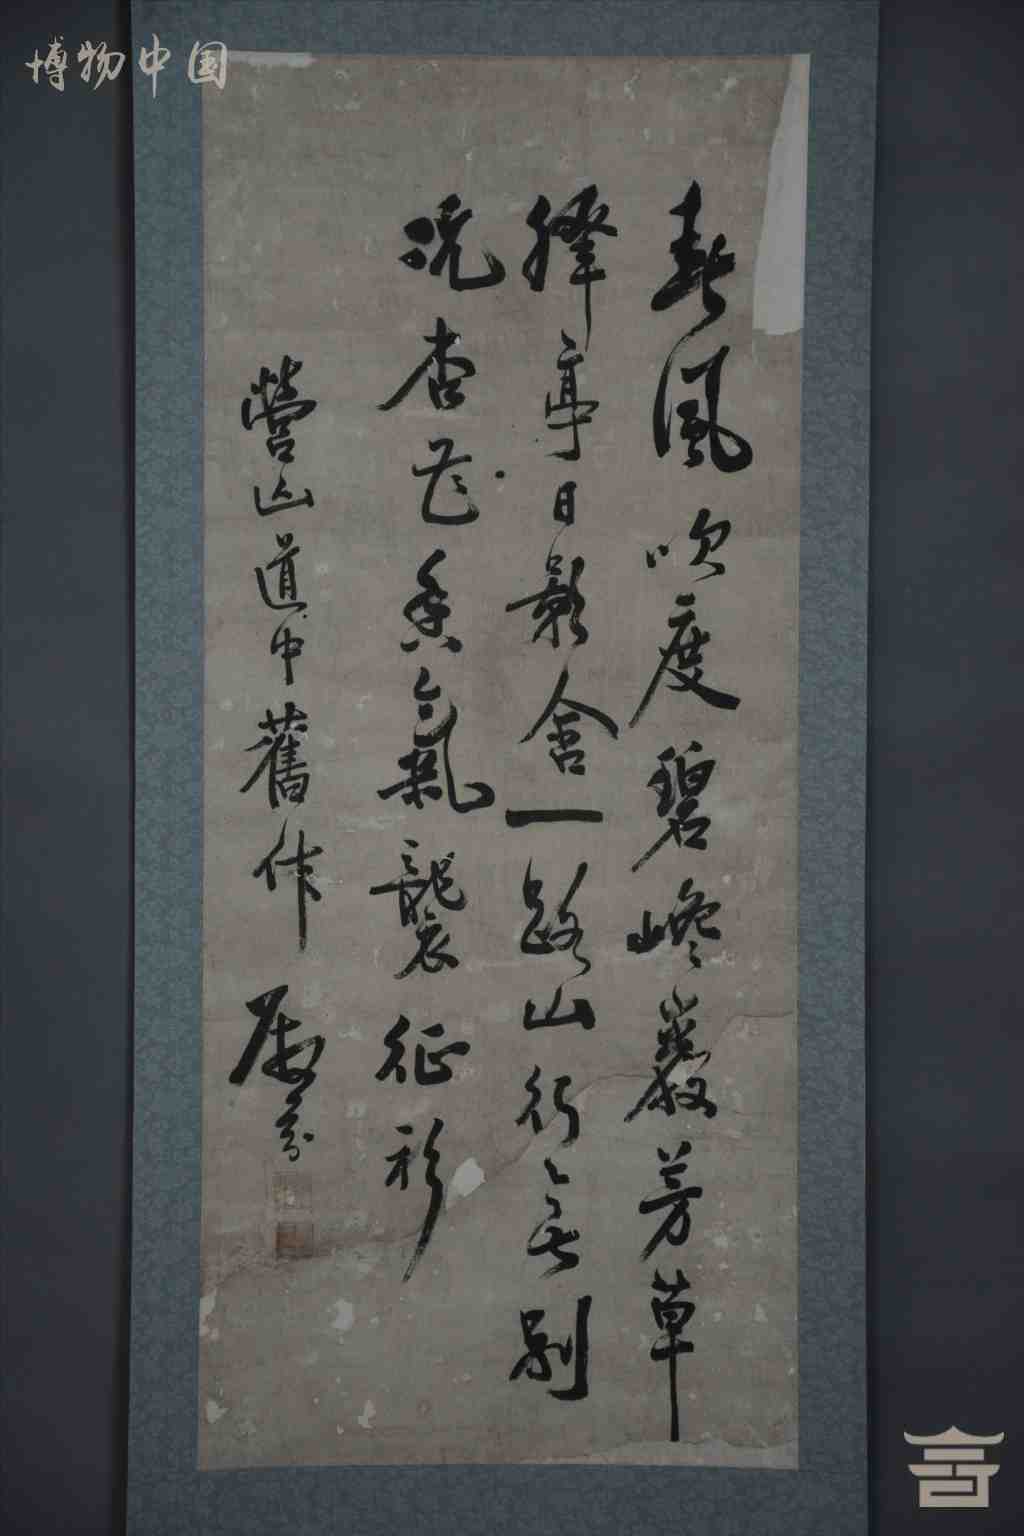 博物中国
春風吹度碧巉巖芳草
驛亭日影含一路山行無別
況杏花香氣襲征衫
營山道中舊作